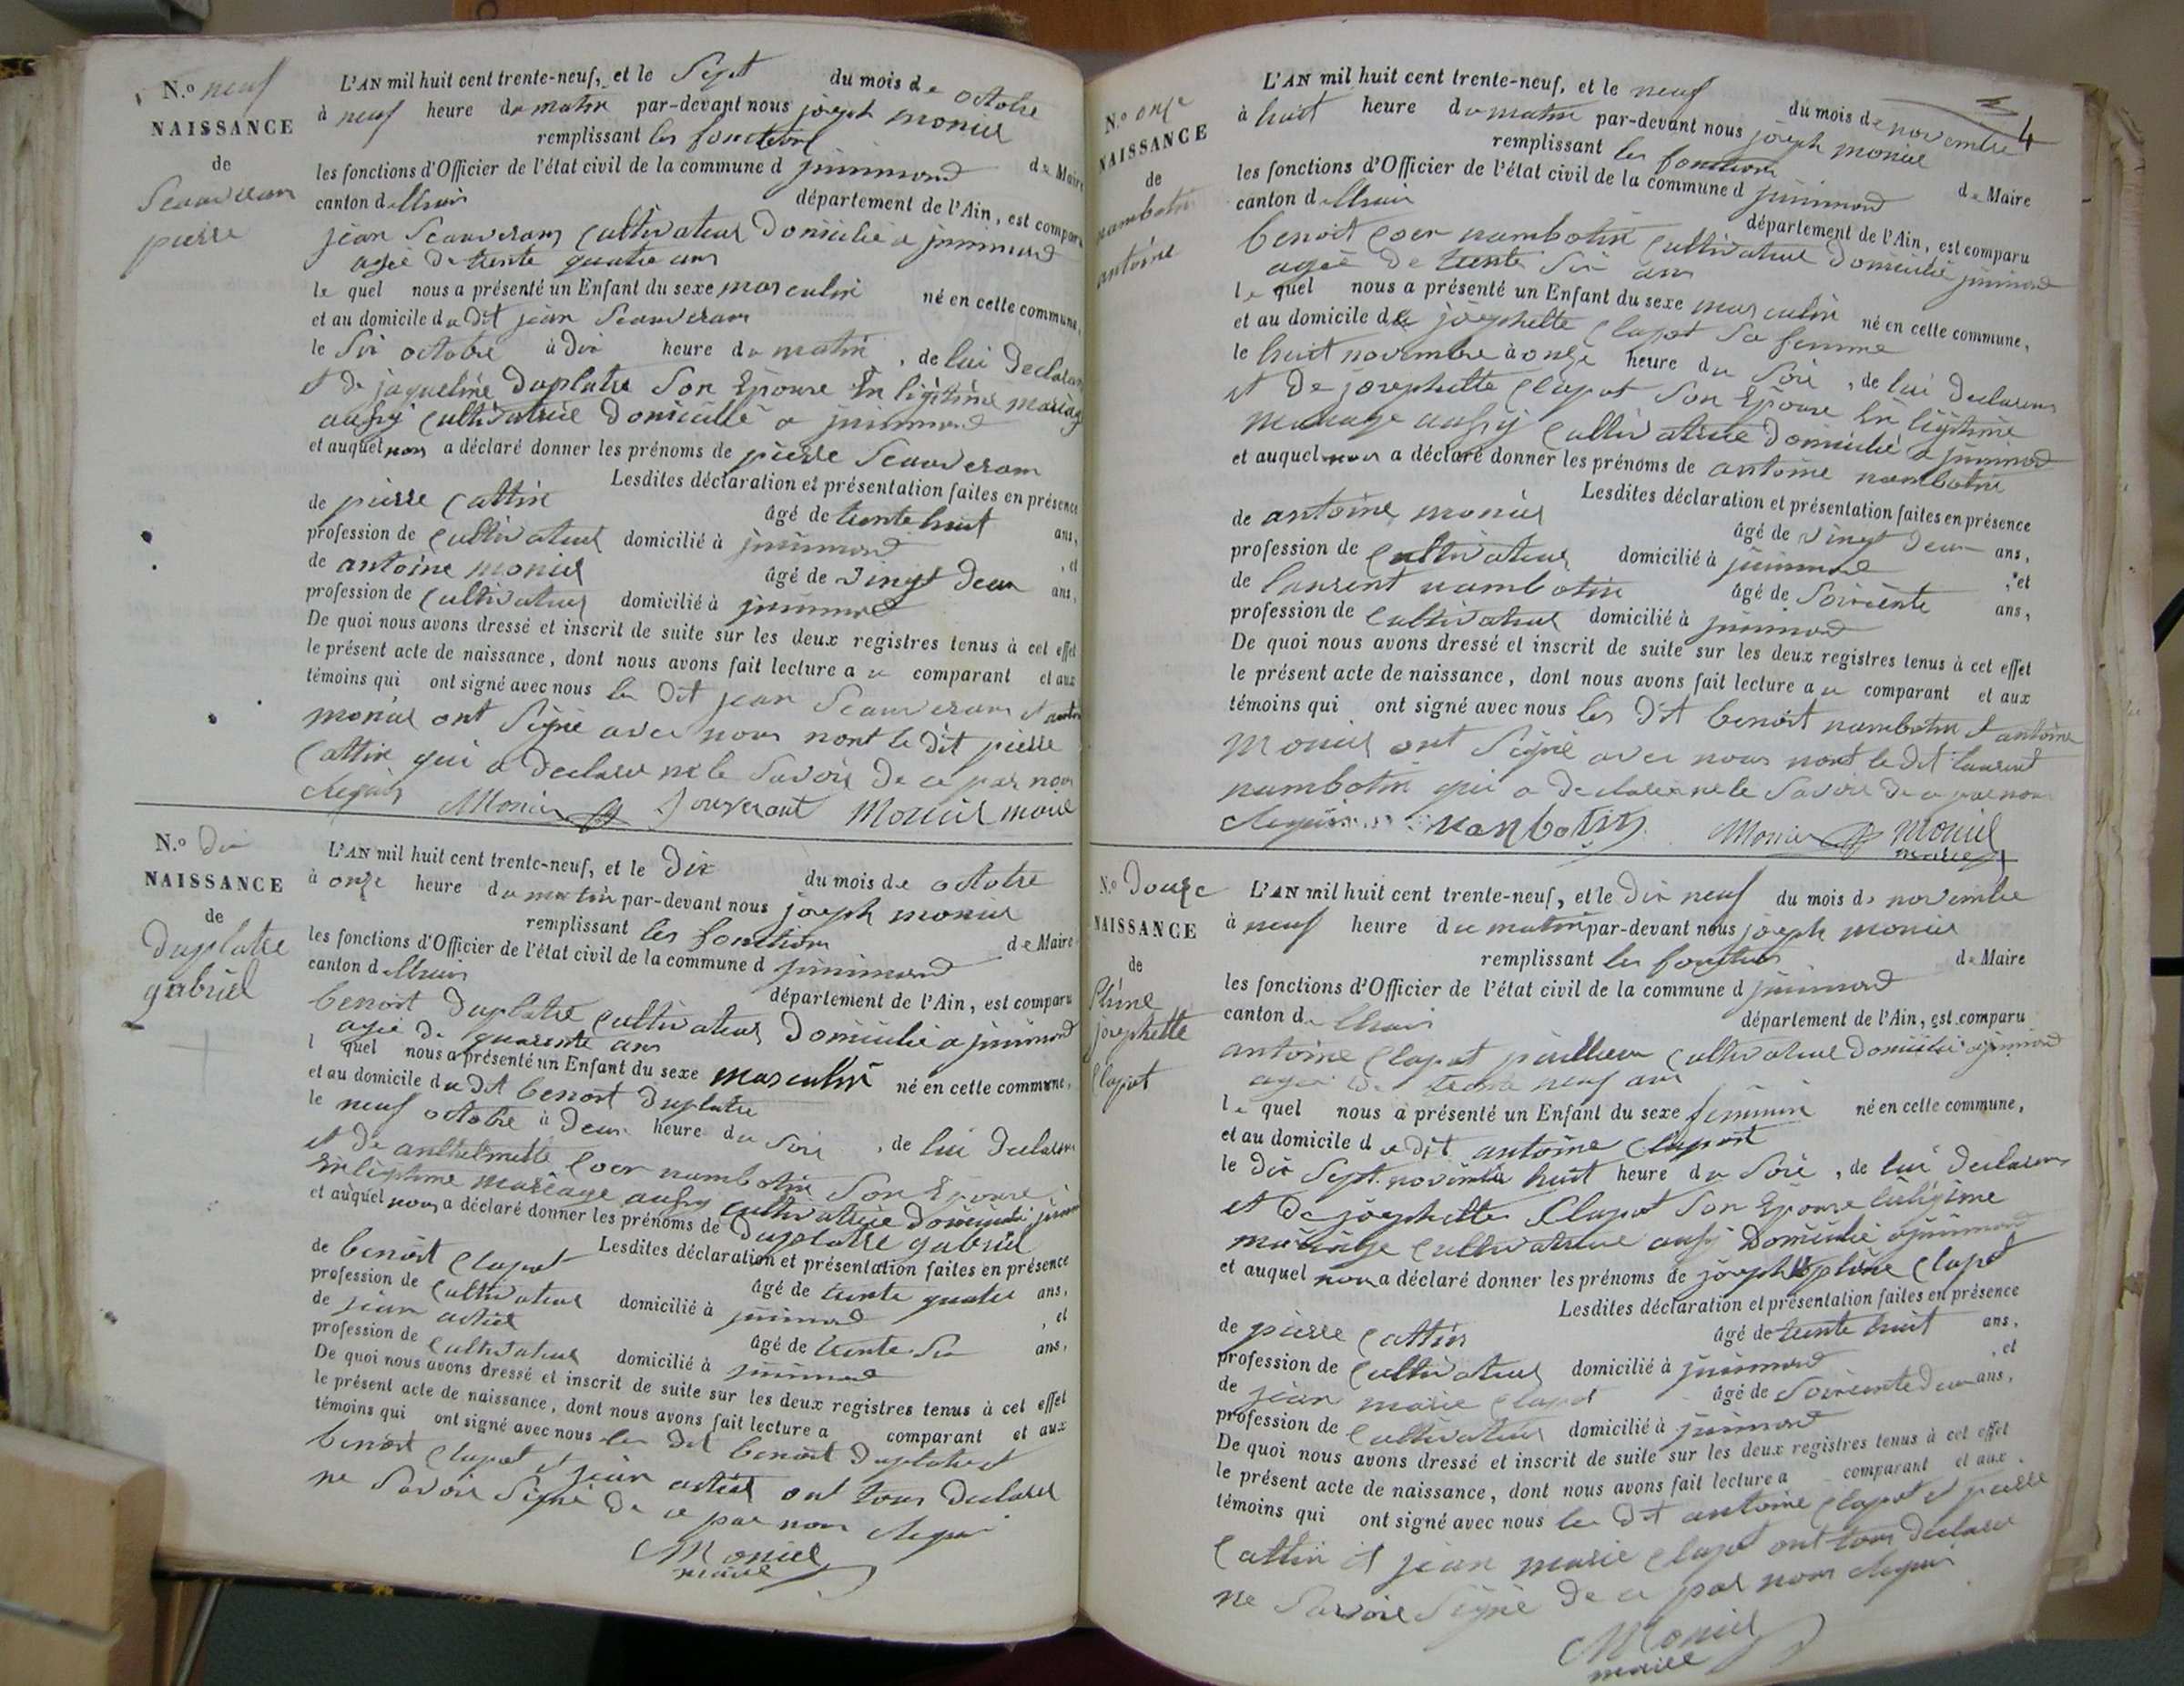 N.o neuf
NAISSANCE
de
pierre
L'AN mil huit cent trente-neuf, et le Sept du mois de octobre
à neuf heure du matin par-devant nous joseph monier
remplissant les fonction de Maire
les fonctions d'Officier de l'état civil de la commune d jujurieux
canton d département de l'Ain, est comparu
jean cultivateur Domicilié a
agée de trente quatre ans
le quel nous a présenté un Enfant du sexe masculin né en cette commune,
et au domicile du dit jean
le Six octobre à dix heure du matin, de lui Declarant
et de jaqueline Duplatre Son Epouse En légitime mariage
aussy Cultivatrice Domicilié a
et auquel nous a déclaré donner les prénoms de pierre
Lesdites déclaration et présentation faites en présence
de pierre Cattin âgé de trente huit ans,
profession de Cultivateur domicilié à , et
de antoine monier âgé de vingt deux ans,
profession de Cultivateur domicilié à
De quoi nous avons dressé et inscrit de suite sur les deux registres tenus à cet effet
le présent acte de naissance, dont nous avons fait lecture a comparant et aux
témoins qui ont signé avec nous les Dit jean et
monier ont Signé avec nous nont le dit pierre
Cattin qui a declaré ne le Savoir De ce par nous
Requis Monier Souverant Monier maire
N.o dix
NAISSANCE
de
Duplatre
gabriel
L'AN mil huit cent trente-neuf, et le Dix du mois de octobre
à onze heure du matin par-devant nous joseph monier
remplissant les fonction de Maire
les fonctions d'Officier de l'état civil de la commune d
canton d département de l'Ain, est comparu
benoit Duplatre Cultivateur Domicilié a
agée de quarente ans
l quel nous a présenté un Enfant du sexe masculin né en cette commune,
et au domicile du dit benoit Duplatre
le neuf octobre à deux heure du Soir, de lui Declarant
et de anthelmette nambotin Son Epouse
En légitime mariage aussy cultivatrice Domicilié
et auquel nous a déclaré donner les prénoms de Duplatre gabriel
Lesdites déclaration et présentation faites en présence
de benoit Clapot âgé de trente quatre ans,
profession de Cultivateur domicilié à , et
de jean âgé de trente Six ans,
profession de Cultivateur domicilié à
De quoi nous avons dressé et inscrit de suite sur les deux registres tenus à cet effet
le présent acte de naissance, dont nous avons fait lecture a comparant et aux
témoins qui ont signé avec nous les Dit benoit Duplatre et
benoit Clapot et jean ont tous declaré
ne Savoir Signé De ce par nous Requis
Monier
maire
4
N.o onze
NAISSANCE
de
nambotin
antoine
L'AN mil huit cent trente-neuf, et le neuf du mois de novembre
à huit heure du matin par-devant nous joseph monier
remplissant les fonction de Maire
les fonctions d'Officier de l'état civil de la commune d
canton d département de l'Ain, est comparu
benoit nambotin Cultivateur Domicilié
agée De trente Six ans
le quel nous a présenté un Enfant du sexe masculin né en cette commune,
et au domicile de josephette Clapot Sa femme
le huit novembre à onze heure du Soir, de lui Declarant
et De josephette Clapot Son Epouse En légitime
mariage aussy Cultivatrice Domicilié a
et auquel nous a déclaré donner les prénoms de antoine nambotin
Lesdites déclaration et présentation faites en présence
de antoine monier âgé de vingt deux ans,
profession de Cultivateur domicilié à , et
de laurent nambotin âgé de Soixente ans,
profession de Cultivateur domicilié à
De quoi nous avons dressé et inscrit de suite sur les deux registres tenus à cet effet
le présent acte de naissance, dont nous avons fait lecture a ce comparant et aux
témoins qui ont signé avec nous les Dit benoit nambotin et antoine
Monier ont Signé avec nous nont le dit laurent
nambotin qui a declaré ne le Savoir De ce par nous
Requis nanbotin Monier Monier
maire
N.o Douze
NAISSANCE
de
josephette
Clapot
L'AN mil huit cent trente-neuf, et le Dix neuf du mois de novembre
à neuf heure du matin par-devant nous joseph monier
remplissant les fonction de Maire
les fonctions d'Officier de l'état civil de la commune d
canton d département de l'Ain, est comparu
antoine Clapot cultivateur Domicilié a
agée de trente neuf ans
le quel nous a présenté un Enfant du sexe feminin né en cette commune,
et au domicile du dit antoine Clapot
le Dix Sept novembre huit heure du Soir, de lui Declarant
et De josephette Clapot Son Epouse légitime
mariage Cultivatrice aussy Domicilié a
et auquel nous a déclaré donner les prénoms de Clapot
Lesdites déclaration et présentation faites en présence
de pierre Cattin âgé de trente huit ans,
profession de Cultivateur domicilié à , et
de jean marie Clapot âgé de Soixente deux ans,
profession de Cultivateur domicilié à
De quoi nous avons dressé et inscrit de suite sur les deux registres tenus à cet effet
le présent acte de naissance, dont nous avons fait lecture a comparant et aux
témoins qui ont signé avec nous les Dit antoine Clapot et pierre
Cattin et jean marie Clapot ont tous declaré
ne Savoir Signé De ce par nous Requis
Monier
maire